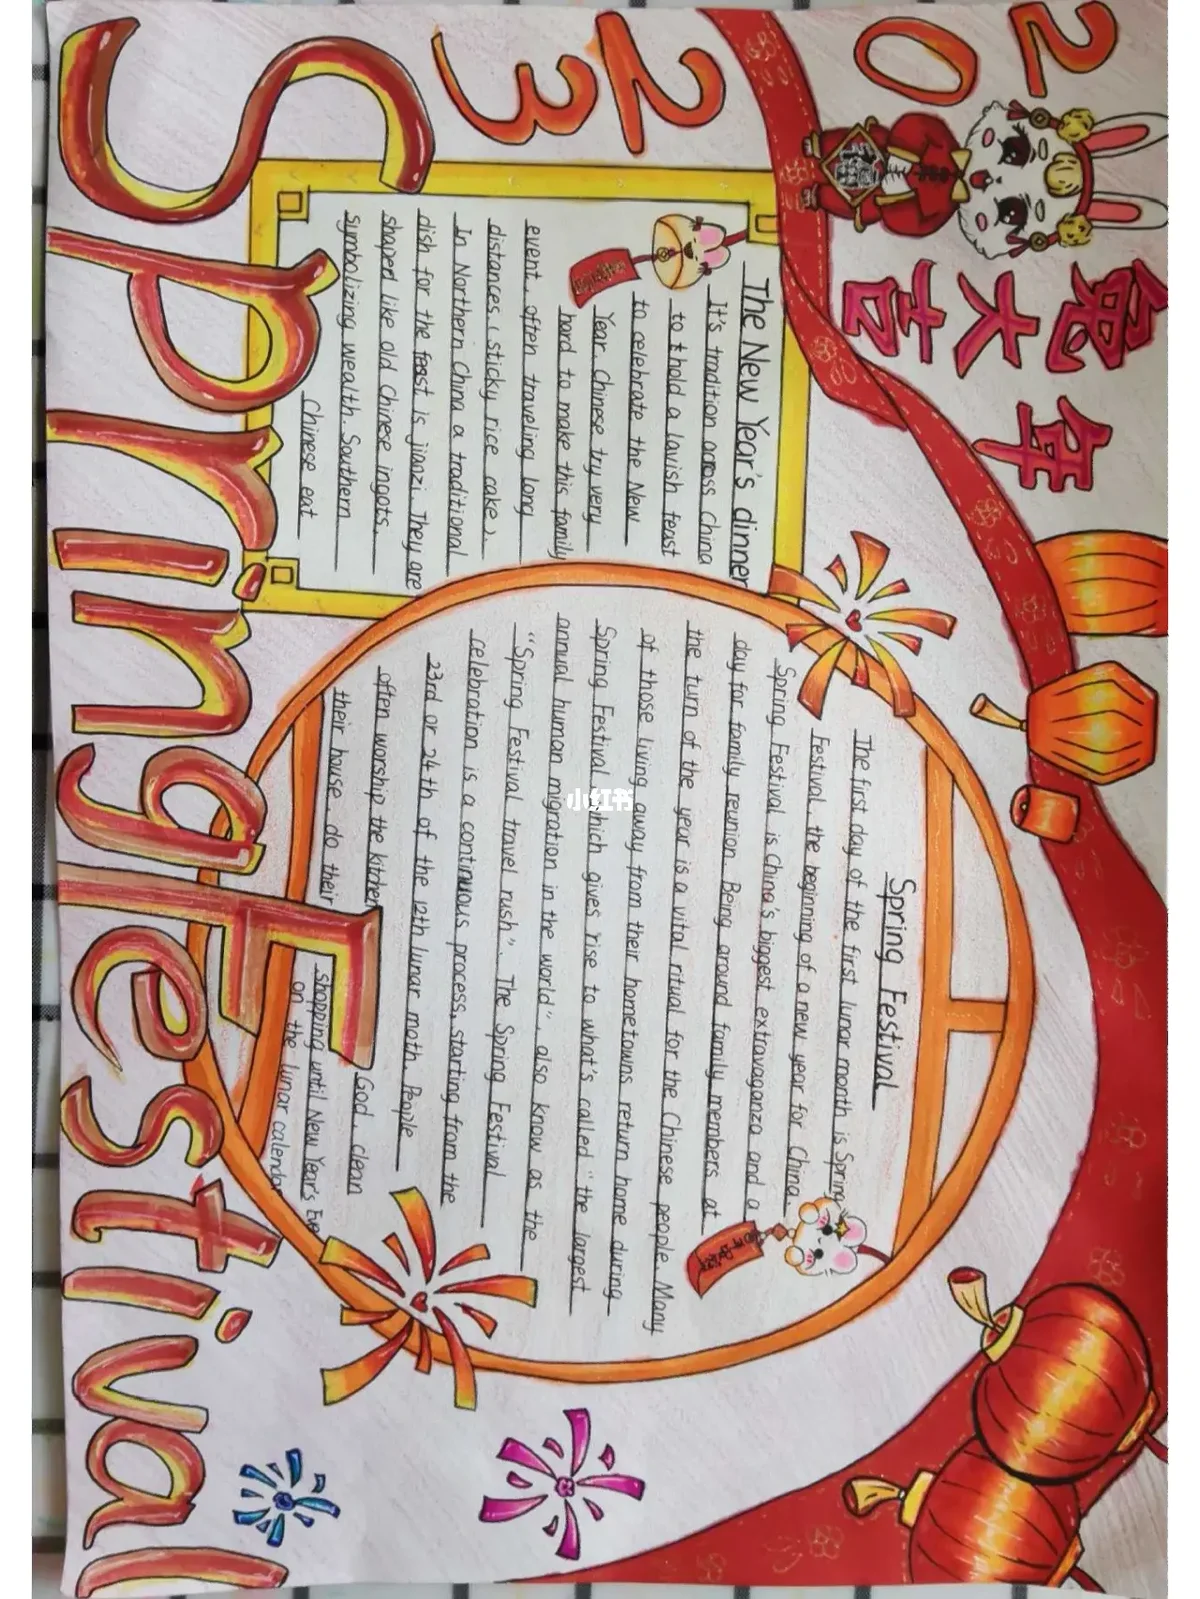 2023
兔年大吉
The New Year's dinner
It's tradition across China
to t hold a lavish feast
to celebrate the New
Year. Chinese try very
hard to make this family
event, often traveling long
distances, (sticky rice cake).
In Northern China a traditional
dish for the feast is jiaozi. They are
shaped like old Chinese ingots,
symbolizing wealth. Southern
Chinese eat
Spring Festival
The first day of the first lunar month is Spring
Festival, the beginning of a new year for China.
Spring Festival is China's biggest extravaganza and a
day for family reunion. Being around family members at
the turn of the year is a vital ritual for the Chinese people. Many
of those living away from their hometowns return home during
Spring Festival, which gives rise to what's called "the largest
annual human migration in the world", also know as the
"Spring Festival travel rush". The Spring Festival
celebration is a continuous process, starting from the
23rd or 24th of the 12th lunar moth. People
often worship the kitchen God, clean
their house, do their shopping until New Year's Eve
on the lunar calendar
Spring Festival
小红书